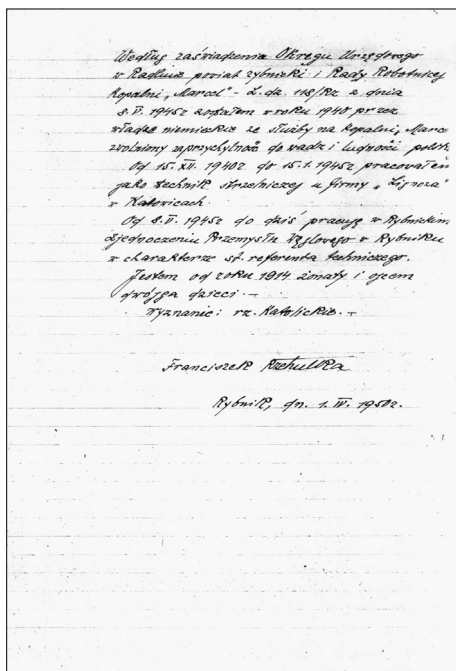 Według zaświadczenia Okręgu Urzędowego
w Radlinie powiat rybnicki i Rady Robotniczej
kopalni „Marcel" - L. dz. 118/Rz z dnia
8.V. 1945r zostałem w roku 1940 przez
władze niemieckie ze służby na kopalni „Marc
zwolniony za przychylność do władz i ludności polsk
Od 15.XII. 1940r. do 15.1.1945r pracowałem
jako technik strzelniczej u firmy „Lignoza"
w Katowicach.
Od 8.II. 1945r do dziś pracuję w Rybnickim
Zjednoczeniu Przemysłu Węglowego w Rybniku
w charakterze st. referenta technicznego.
Jestem od roku 1914 żonaty i ojcem
dwojga dzieci. -
Wyznanie: rz. Katolickie. -
Franciszek
Rybnik, dn. 1. IV. 1950r.